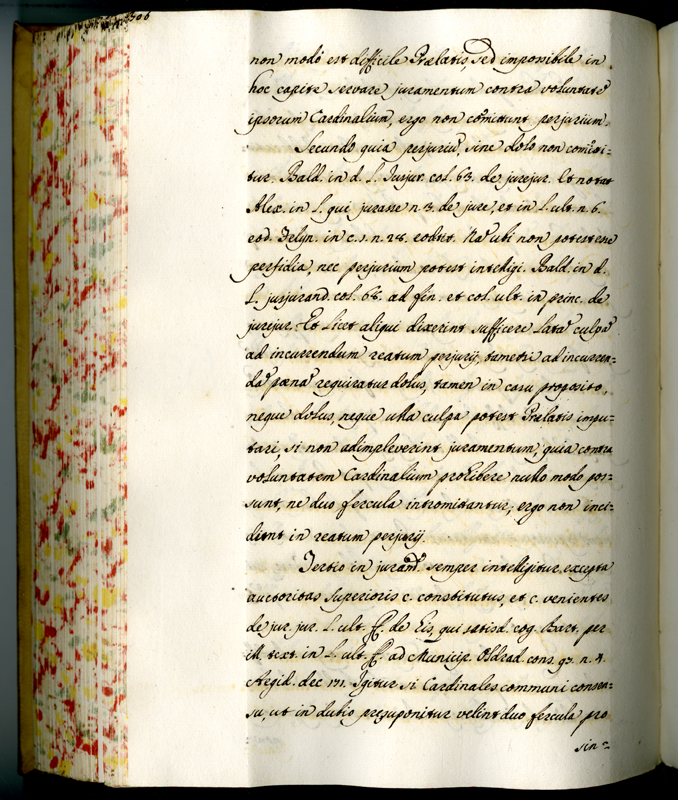 non modò est difficile Prælatis, sed impossibile in
hoc capite servare juramentum contra voluntatẽ
ipsorum Cardinalium, ergo non cõmittunt perjurium.
Secundo quia perjuriũ, sine dolo non comitti-
tur. Bald. in d. L. Jusjur. col. 63. de jurejur. Et notat
Alex. in L. qui jurasse n. 3. de jure, et in L. ult. n. 6.
eod. Felyn. in c. 1. n. 28. eod tit. Nã ubi non potest esse
perfidia, nec perjurium potest intelligi. Bald. in d.
L. jusjurand. col. 68. ad fin. et col. ult. in princ. de
jurejur. Et licet aliqui dixerint sufficere latã culpã
ad incurrendum reatum perjurij, tametsi ad incurren-
dã pænã requiratur dolus, tamen in casu proposito,
neque dolus, neque ulla culpa potest Prælatis impu-
tari, si non adimpleverint juramentum, quia contra
voluntatem Cardinalium prohibere nullo modo pos-
sunt, ne duo fercula intromittantur, ergo non inci-
dunt in reatum perjurij.
Tertio in juram. semper intelligitur excepta
auctoritas Superioris c. constitutus, et c. venientes
de jur. jur. L. ult. ff. de Eis, qui satisd. cog. Bart. per
ill. text. in L. ult. ff. ad Municip. Oldrad. cons. 93. n. 4.
Aegid. dec. 131. Igitur si Cardinales communi consen-
su, ut in dubio presuponitur velint duo fercula pro
sin-